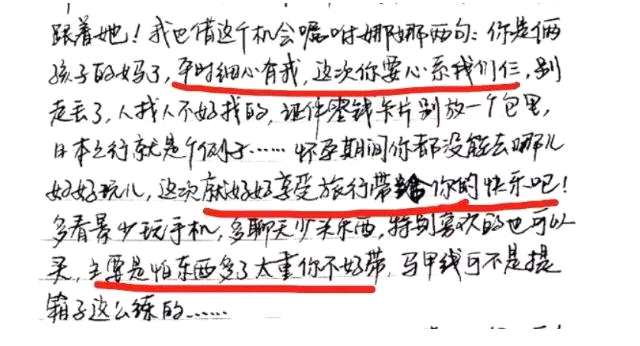 跟着她！我也借这个机会嘱咐娜娜两句：你是俩
孩子的妈了，平时细心有我，这次你要心系我们仨，别
走丢了，人找人不好找的，证件零钱卡片别放一个包里，
日本之行就是个例子……怀孕期间你都没能去哪儿
好好玩儿，这次就好好享受旅行带给你的快乐吧！
多看景少玩手机，多聊天少买东西，特别喜欢的也可以
买，主要是怕东西多了太重你不好带，马甲线可不是提
箱子这么练的……